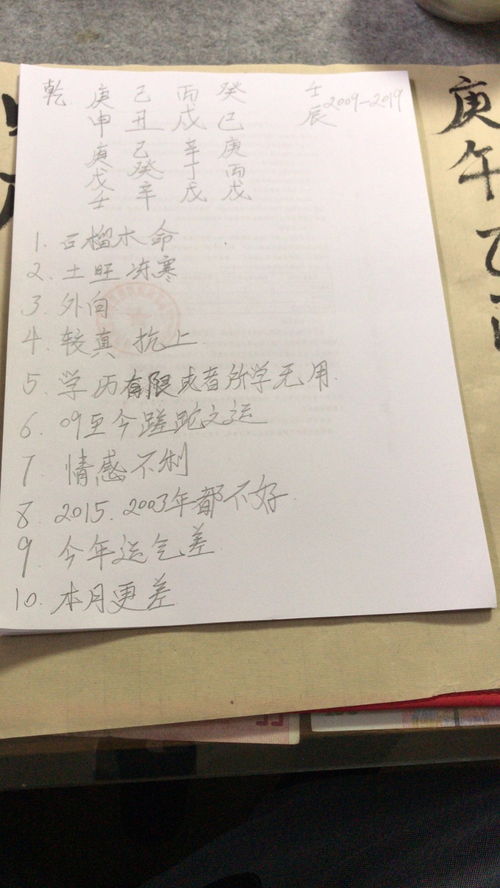 乾 庚 己 丙 癸 壬
申 丑 戌 巳 辰 2009-2019
庚 己 辛 庚
戊 癸 丁 丙
壬 辛 戊 戊
1. 石榴木命
2. 土旺冻寒
3. 外向
4. 较真 抗上
5. 学历有限或者所学无用.
6. 09至今蹉跎之运
7. 情感不利
8. 2015. 2003年都不好.
9. 今年运气差
10. 本月更差
庚午乙酉